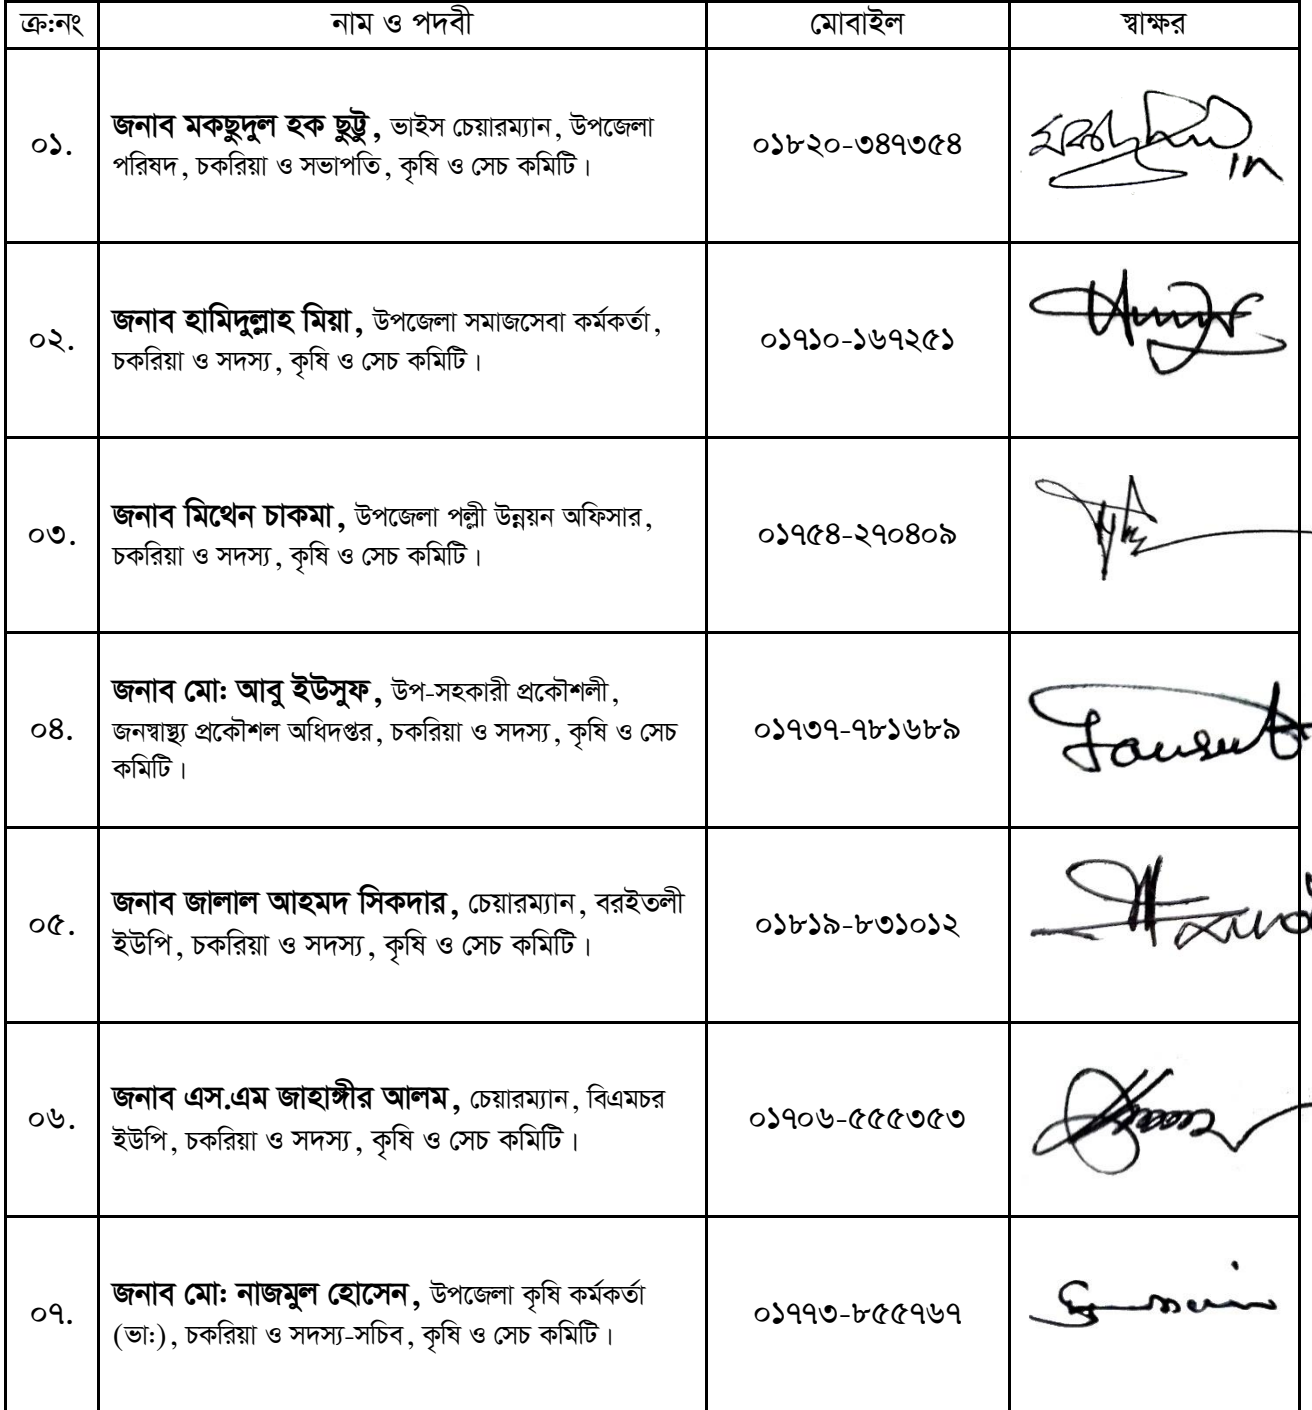 ক্র:নং নাম ও পদবী মোবাইল স্বাক্ষর
জনাব মকছুদুল হক ছুট্টু, ভাইস চেয়ারম্যান, উপজেলা
০১. পরিষদ, চকরিয়া ও সভাপতি, কৃষি ও সেচ কমিটি। ০১৮২০-৩৪৭৩৫৪
জনাব হামিদুল্লাহ মিয়া, উপজেলা সমাজসেবা কর্মকর্তা,
০২. চকরিয়া ও সদস্য, কৃষি ও সেচ কমিটি। ০১৭১০-১৬৭২৫১
জনাব মিথেন চাকমা, উপজেলা পল্লী উন্নয়ন অফিসার,
০৩. চকরিয়া ও সদস্য, কৃষি ও সেচ কমিটি। ০১৭৫৪-২৭০৪০৯
জনাব মো: আবু ইউসুফ, উপ-সহকারী প্রকৌশলী,
০৪. জনস্বাস্থ্য প্রকৌশল অধিদপ্তর, চকরিয়া ও সদস্য, কৃষি ও সেচ ০১৭৩৭-৭৮১৬৮৯
কমিটি।
জনাব জালাল আহমদ সিকদার, চেয়ারম্যান, বরইতলী
০৫. ইউপি, চকরিয়া ও সদস্য, কৃষি ও সেচ কমিটি। ০১৮১৯-৮৩১০১২
জনাব এস.এম জাহাঙ্গীর আলম, চেয়ারম্যান, বিএমচর
০৬. ইউপি, চকরিয়া ও সদস্য, কৃষি ও সেচ কমিটি। ০১৭০৬-৫৫৫৩৫৩
জনাব মো: নাজমুল হোসেন, উপজেলা কৃষি কর্মকর্তা
০৭. (ভা:), চকরিয়া ও সদস্য-সচিব, কৃষি ও সেচ কমিটি। ০১৭৭৩-৮৫৫৭৬৭